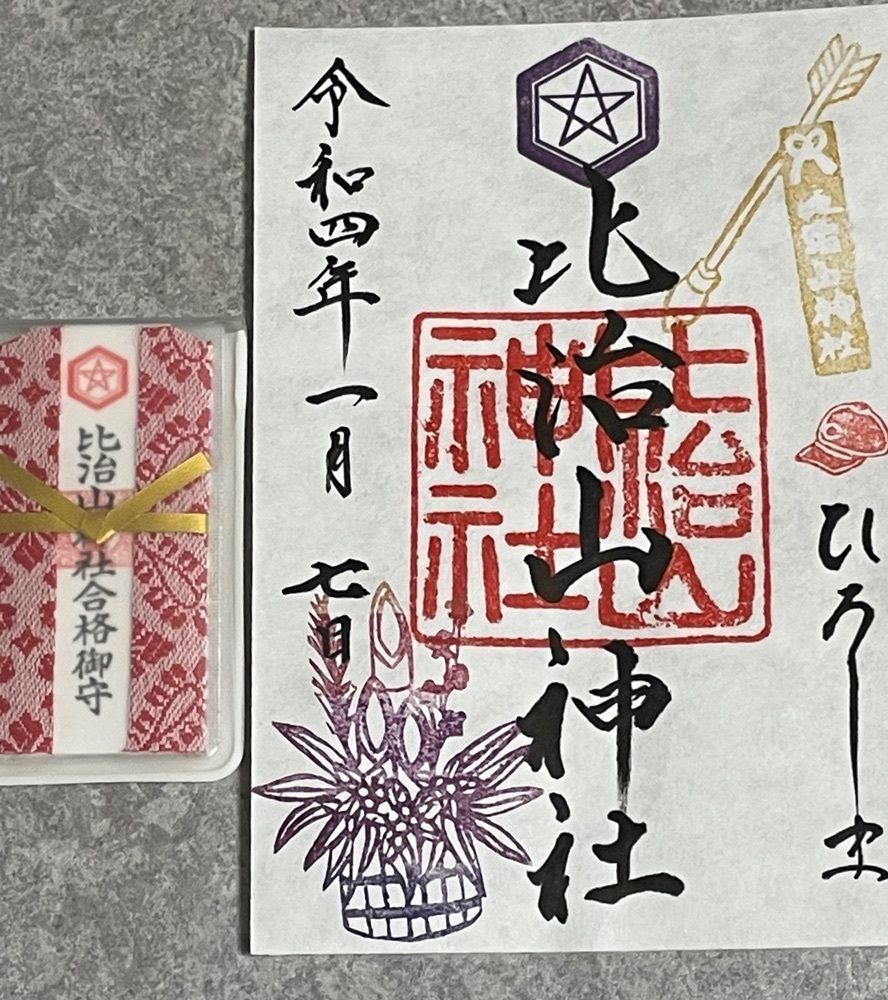 ひろしま
比治山神社
比治山神社
比治山神社
令和四年一月七日
比治山神社合格御守